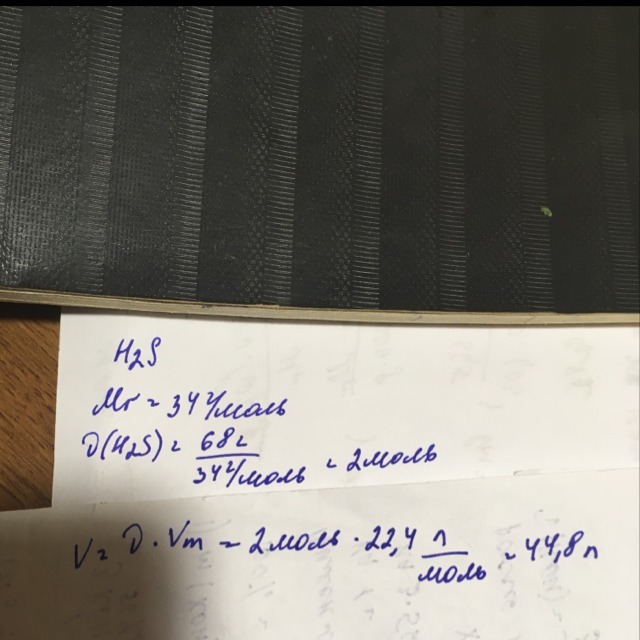 H2S
Mr = 34 г/моль
D(H2S) = 68г / 34 г/моль = 2 моль
V = D · Vm = 2 моль · 22,4 л/моль = 44,8 л